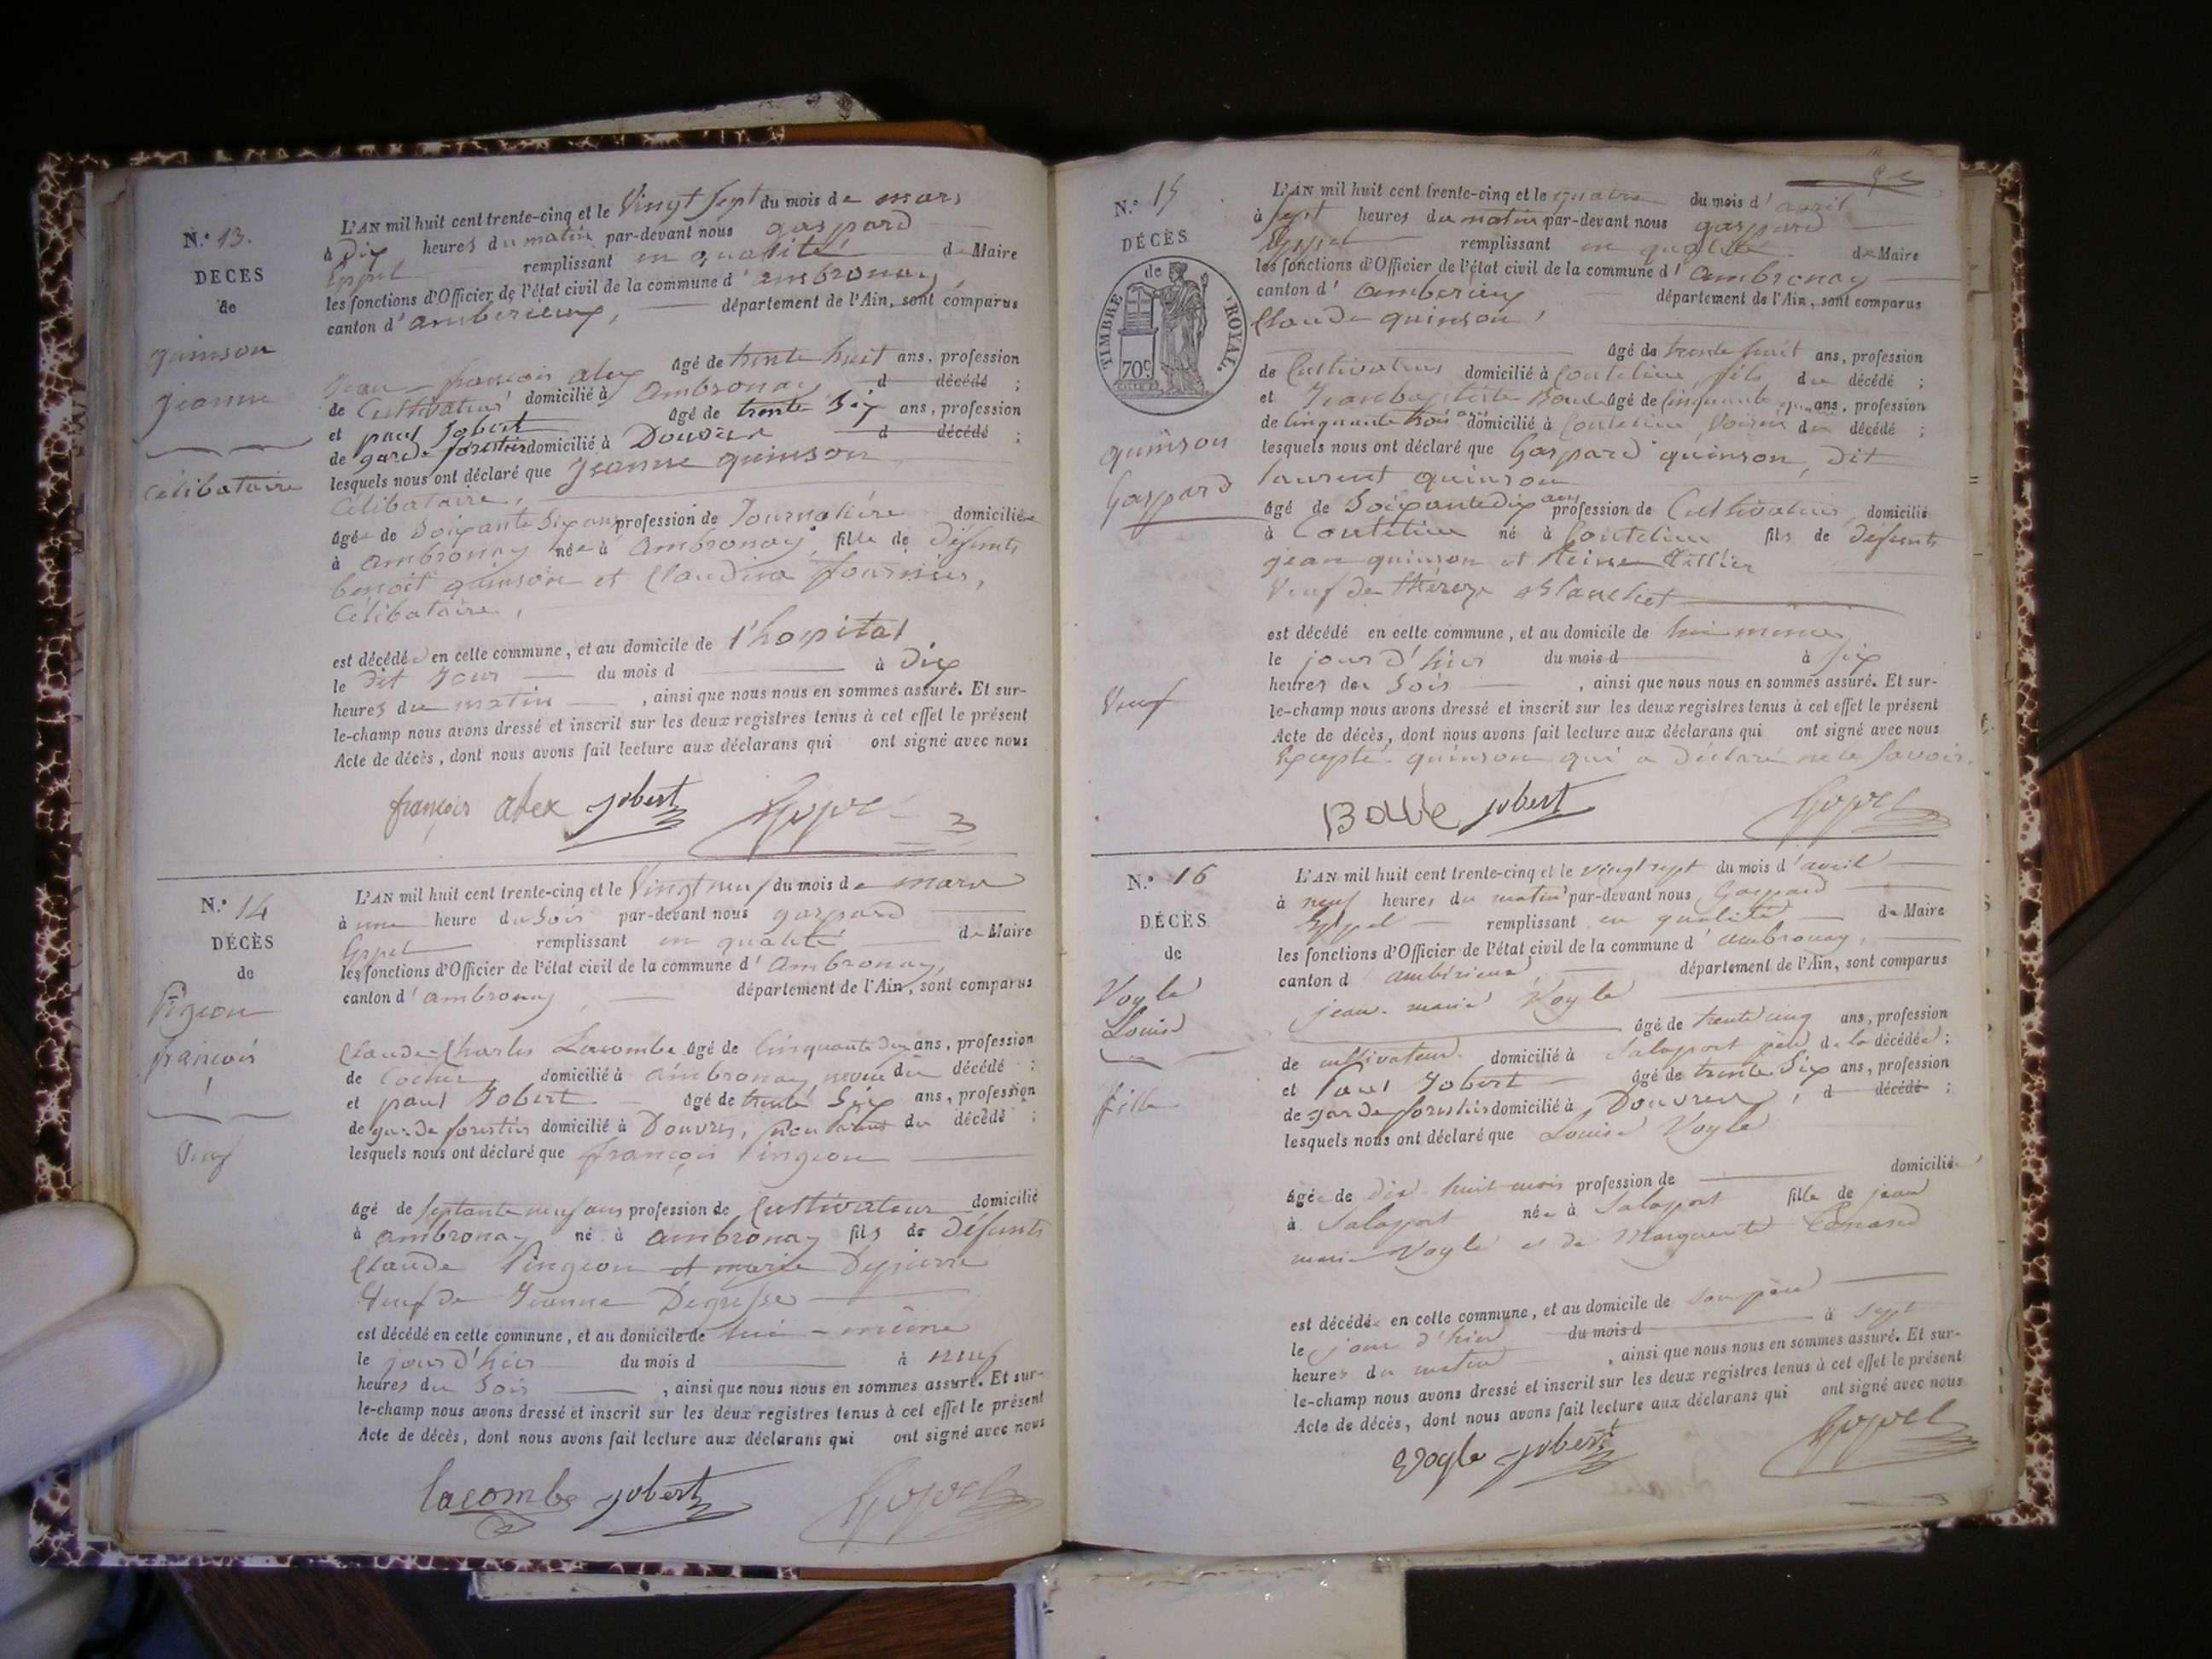 N.° 13.
DÉCÈS
de
quinson
jeanne
Célibataire
L'AN mil huit cent trente-cinq et le Vingt Sept du mois de mars
à Dix heures du matin par-devant nous gaspard
Eppel remplissant en qualité de Maire
les fonctions d'Officier de l'état civil de la commune d'ambronay
canton d'amberieux, département de l'Ain, sont comparus
Jean-françois alex âgé de trente huit ans, profession
de Cultivateur domicilié à Ambronay d décédé ;
et paul Jobert âgé de trente Six ans, profession
de garde forestier domicilié à Douvres d décédé ;
lesquels nous ont déclaré que Jeanne quinson
Célibataire,
âgée de Soixante Six ans profession de Journalière domiciliée
à ambronay née à Ambronay fille de Défunts
benoit quinson et Claudine fournier,
Célibataire,
est décédée en cette commune, et au domicile de l'hopital
le dit Jour du mois d à Dix
heures du matin, ainsi que nous nous en sommes assuré. Et sur-
le-champ nous avons dressé et inscrit sur les deux registres tenus à cet effet le présent
Acte de décès, dont nous avons fait lecture aux déclarans qui ont signé avec nous
françois alex jobert Eppel
N.° 14
DÉCÈS
de
Pingeon
françois
Veuf
L'AN mil huit cent trente-cinq et le Vingt neuf du mois de mars
à une heure du Soir par-devant nous gaspard
Eppel remplissant en qualité de Maire
les fonctions d'Officier de l'état civil de la commune d'Ambronay,
canton d'ambronay, département de l'Ain, sont comparus
Claude-Charles Lacombe âgé de Cinquante Deux ans, profession
de Cocher domicilié à ambronay, neveu du décédé ;
et paul Jobert âgé de trente Six ans, profession
de garde forestier domicilié à Douvres, non parent du décédé ;
lesquels nous ont déclaré que françois Pingeon
âgé de Septante neuf ans profession de Cultivateur domicilié
à ambronay né à ambronay fils de Défunts
Claude Pingeon et marie Depierre
Veuf de Jeanne
est décédé en cette commune, et au domicile de lui-même
le jour d'hier du mois d à neuf
heures du Soir, ainsi que nous nous en sommes assuré. Et sur-
le-champ nous avons dressé et inscrit sur les deux registres tenus à cet effet le présent
Acte de décès, dont nous avons fait lecture aux déclarans qui ont signé avec nous
lacombe jobert Eppel
N.° 15
DÉCÈS
de
TIMBRE ROYAL.
70c
quinson
Gaspard
Veuf
L'AN mil huit cent trente-cinq et le quatre du mois d'avril
à Sept heures du matin par-devant nous gaspard
Eppel remplissant en qualité de Maire
les fonctions d'Officier de l'état civil de la commune d'ambronay
canton d'amberieux département de l'Ain, sont comparus
Claude quinson,
âgé de trente huit ans, profession
de Cultivateur domicilié à Coutelieu, fils du décédé ;
et Jean baptiste âgé de Cinquante ans, profession
de domicilié à Coutelieu, Voisin du décédé ;
lesquels nous ont déclaré que Gaspard quinson, dit
laurent quinson
âgé de Soixante dix ans profession de Cultivateur domicilié
à Coutelieu né à Coutelieu fils de Défunts
jean quinson et Reine Tillier
Veuf de thérèze Blanchet
est décédé en cette commune, et au domicile de lui-meme
le jour d'hier du mois d à Six
heures du Soir, ainsi que nous nous en sommes assuré. Et sur-
le-champ nous avons dressé et inscrit sur les deux registres tenus à cet effet le présent
Acte de décès, dont nous avons fait lecture aux déclarans qui ont signé avec nous
Excepté quinson qui a Déclaré ne le Savoir.
jobert Eppel
N.° 16
DÉCÈS
de
Voyle
Louise
fille
L'AN mil huit cent trente-cinq et le vingt sept du mois d'avril
à neuf heures du matin par-devant nous Gaspard
Eppel remplissant en qualité de Maire
les fonctions d'Officier de l'état civil de la commune d'ambronay,
canton d'ambérieux, département de l'Ain, sont comparus
jean-marie Voyle
âgé de trente cinq ans, profession
de cultivateur domicilié à Salaport père de la décédée ;
et Paul Jobert âgé de trente Six ans, profession
de garde forestier domicilié à Douvres, d décédé ;
lesquels nous ont déclaré que Louise Voyle
âgée de dix-huit mois profession de domiciliée
à Salaport née à Salaport fille de jean
marie Voyle et de Marguerite
est décédée en cette commune, et au domicile de son père
le jour d'hier du mois d à Sept
heures du matin, ainsi que nous nous en sommes assuré. Et sur-
le-champ nous avons dressé et inscrit sur les deux registres tenus à cet effet le présent
Acte de décès, dont nous avons fait lecture aux déclarans qui ont signé avec nous
Voyle jobert Eppel